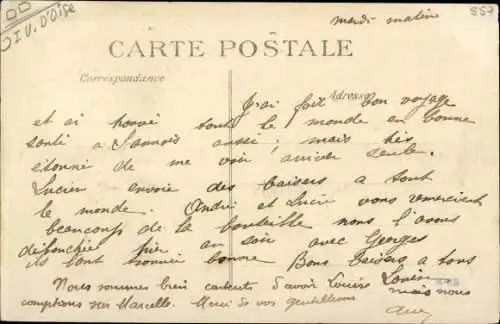 I U. D'Oise
557
mardi matin
CARTE POSTALE
Correspondance
Adresse
J'ai fait bon voyage
et ai trouvé tout le monde en bonne
santé a Sannois aussi; mais très
étonné de me voir arriver seule.
Lucien envoie des baisers a tout
le monde. André et Lucie vous remercient
beaucoup de la bouteille nous l'avons
débouchée hier au soir avec Georges
ils l'ont trouvée bonne Bons baisers a tous
Nous sommes bien contents d'avoir Louise
comptions sur Marcelle. Merci de vos gentillesses
mais nous